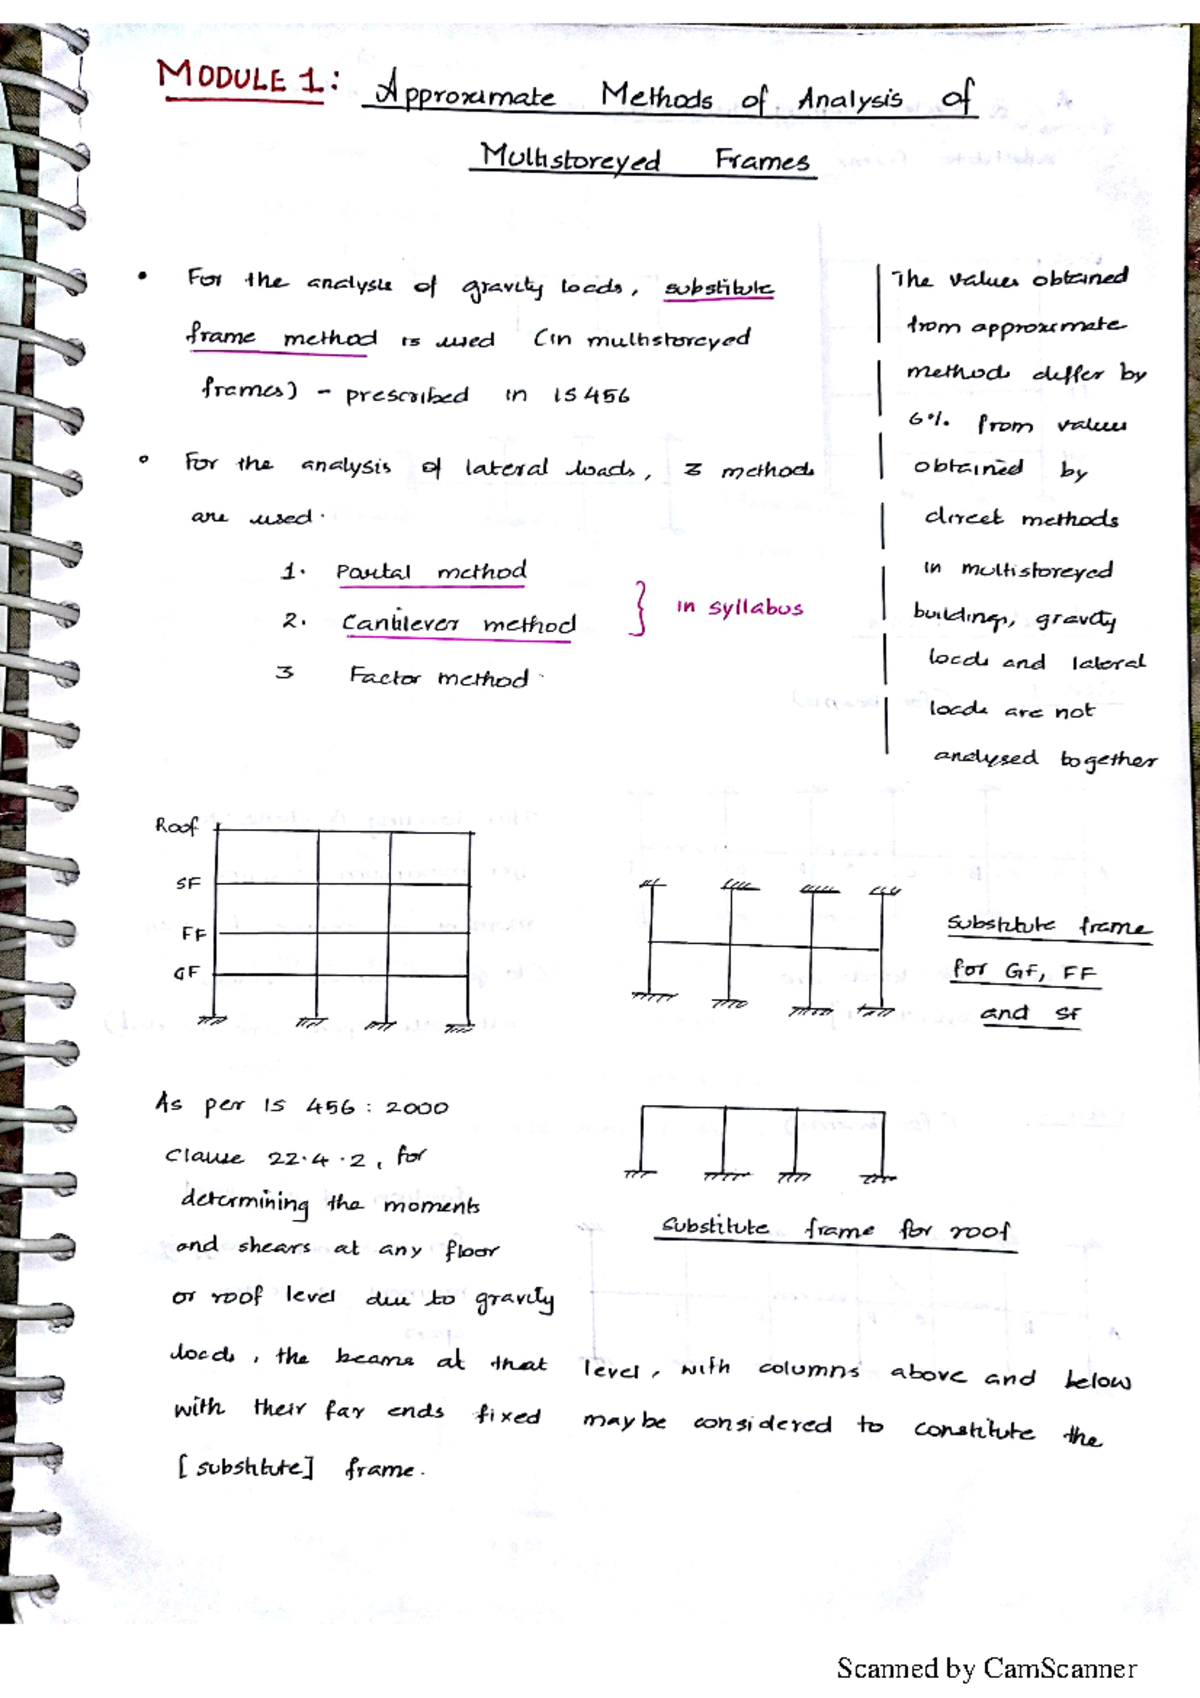 MODULE 1: Approximate Methods of Analysis of
Multistoreyed Frames
• For the analysis of gravity loads, substitute
frame method is used (in multistoreyed
frames) - prescribed in IS 456
• For the analysis of lateral loads, 3 methods
are used.
1. Portal method
2. Cantilever method
} in syllabus
3 Factor method.
The values obtained
from approximate
methods differ by
6% from values
obtained by
direct methods
in multistoreyed
buildings, gravity
loads and lateral
loads are not
analysed together
Roof
SF
FF
GF
Substitute frame
for GF, FF
and SF
As per IS 456 : 2000
Clause 22.4.2, for
determining the moments
and shears at any floor
or roof level due to gravity
loads, the beams at that level, with columns above and below
with their far ends fixed may be considered to constitute the
[substitute] frame.
substitute frame for roof
Scanned by CamScanner